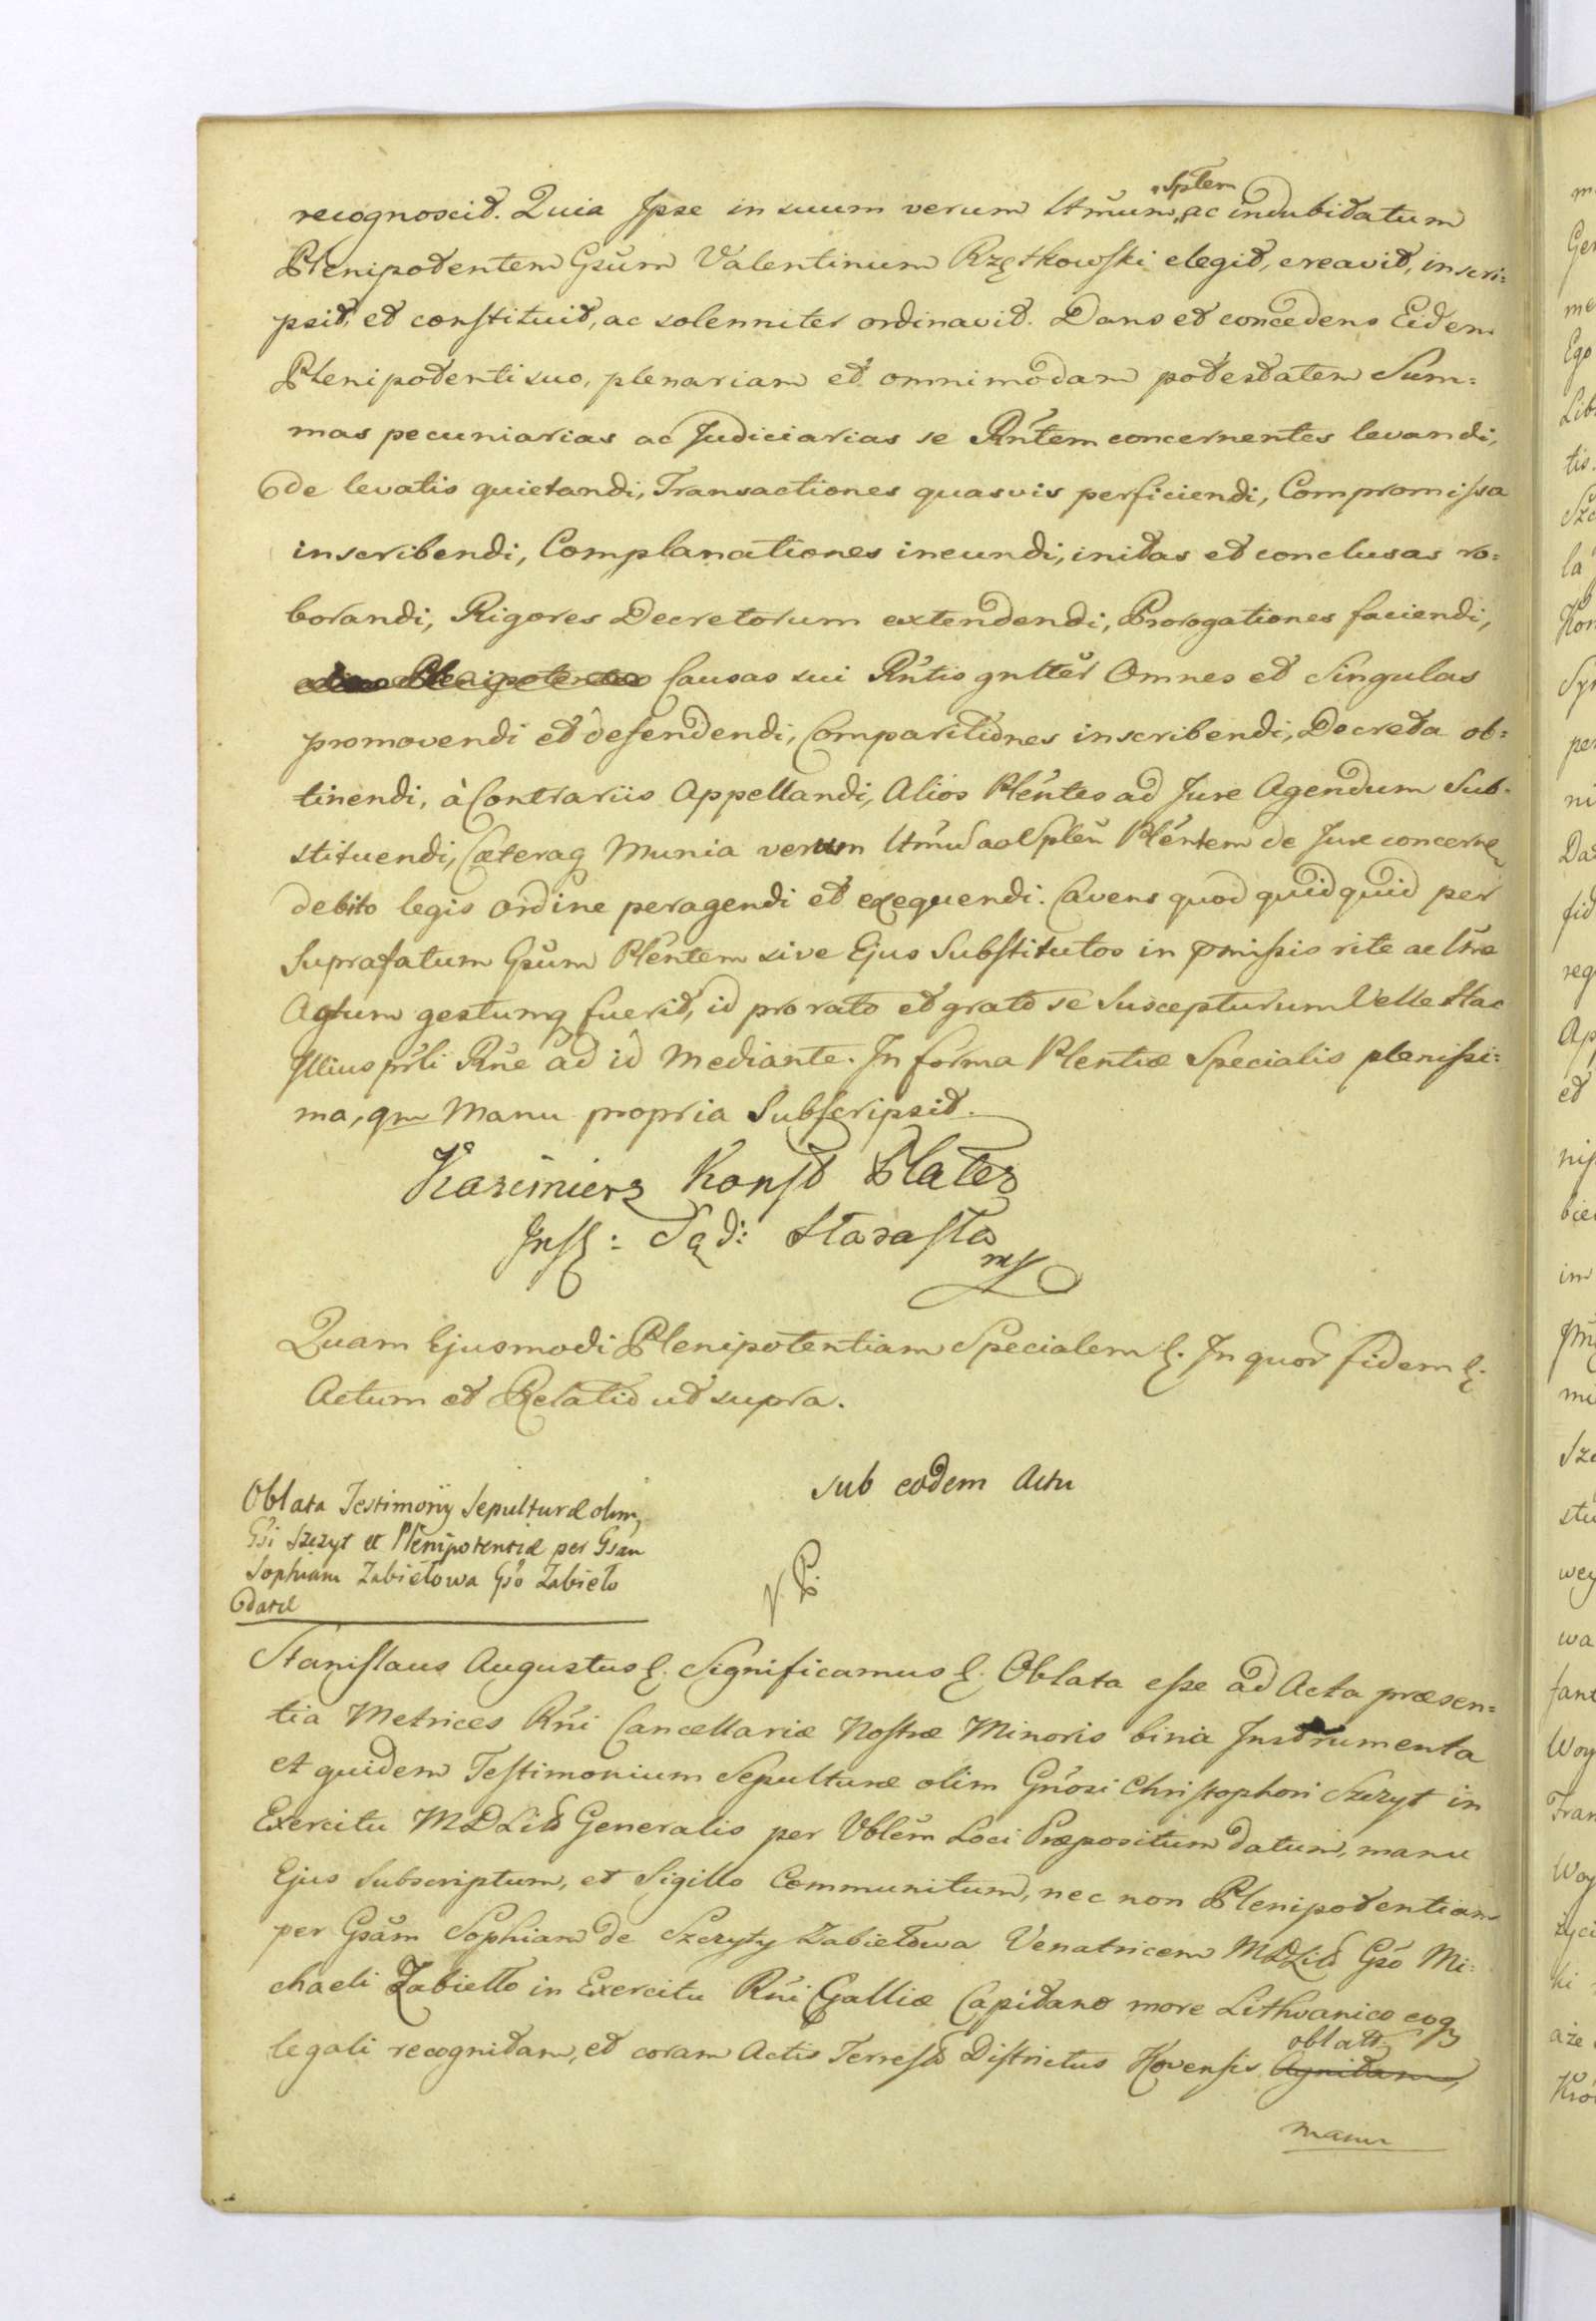 recognoscit. Quia Ipse in suum verum Ltmum, „Splem ac indubitatum
Plenipotentem Gsum Valentinum Rzętkowski elegit, creavit, inscri=
psit, et constituit, ac solenniter ordinavit. Dans et concedens Eidem
Plenipotenti suo, plenariam et omnimodam potestatem Sum=
mas pecuniarias ac Judiciarias se Rntem concernentes levandi,
de levatis quietandi, Transactiones quasvis perficiendi, Compromissa
inscribendi, Complanationes ineundi, initas et conclusas ro=
borandi, Rigores Decretorum extendendi, Prorogationes faciendi,
Causas sui Rntis gnlter Omnes et Singulas
promovendi et defendendi, Comparitiones inscribendi, Decreta ob=
tinendi, à Contrariis Appellandi, Alios Plentes ad Jure Agendum Sub=
stituendi, Cæteraq Munia verum Ltmu ac Spleu Plentem de Jure concerne
debito legis ordine peragendi et exequendi. Cavens quod quidquid per
Suprafatum Gsum Plentem sive Ejus Substitutos in pmissis rite ac ltme
Actum gestumq fuerit, id pro rato et grato se Suscepturum Velle Hac
Illius prli Rne ad id Mediante. In forma Plentiæ Specialis plenissi=
ma, qm Manu propria Subscripsit.
Kazimierz Konst Plater
Insf: Sąd: Starosta
mp
Quam Ejusmodi Plenipotentiam Specialem &. In quor fidem &.
Actum et Relatio ut supra.
sub eodem Actu
Oblata Testimonij Sepulturæ olim,
Gsi Szczyt et Plenipotentiæ per Gsam
Sophiam Zabiełowa Gso Zabieło
datæ
Stanislaus Augustus &. Significamus &. Oblata esse ad Acta præsen=
tia Metrices Rni Cancellariæ Nostræ Minoris bina Instrumenta
et quidem Testimonium Sepulturæ olim Gnosi Christophori Szczyt in
Exercitu MDLitt Generalis per Vblem Loci Præpositum datum, manu
Ejus Subscriptum, et Sigillo Communitum, nec non Plenipotentiam
per Gsam Sophiam de Szczyty Zabiełowa Venatricem MDLitt Gso Mi=
chaeli Zabiełło in Exercitu Rni Galliæ Capitano more Lithvanico eoq
legali recognitam, et coram Actis Terrest Districtus Kovensis oblatt Agnitam,
manu